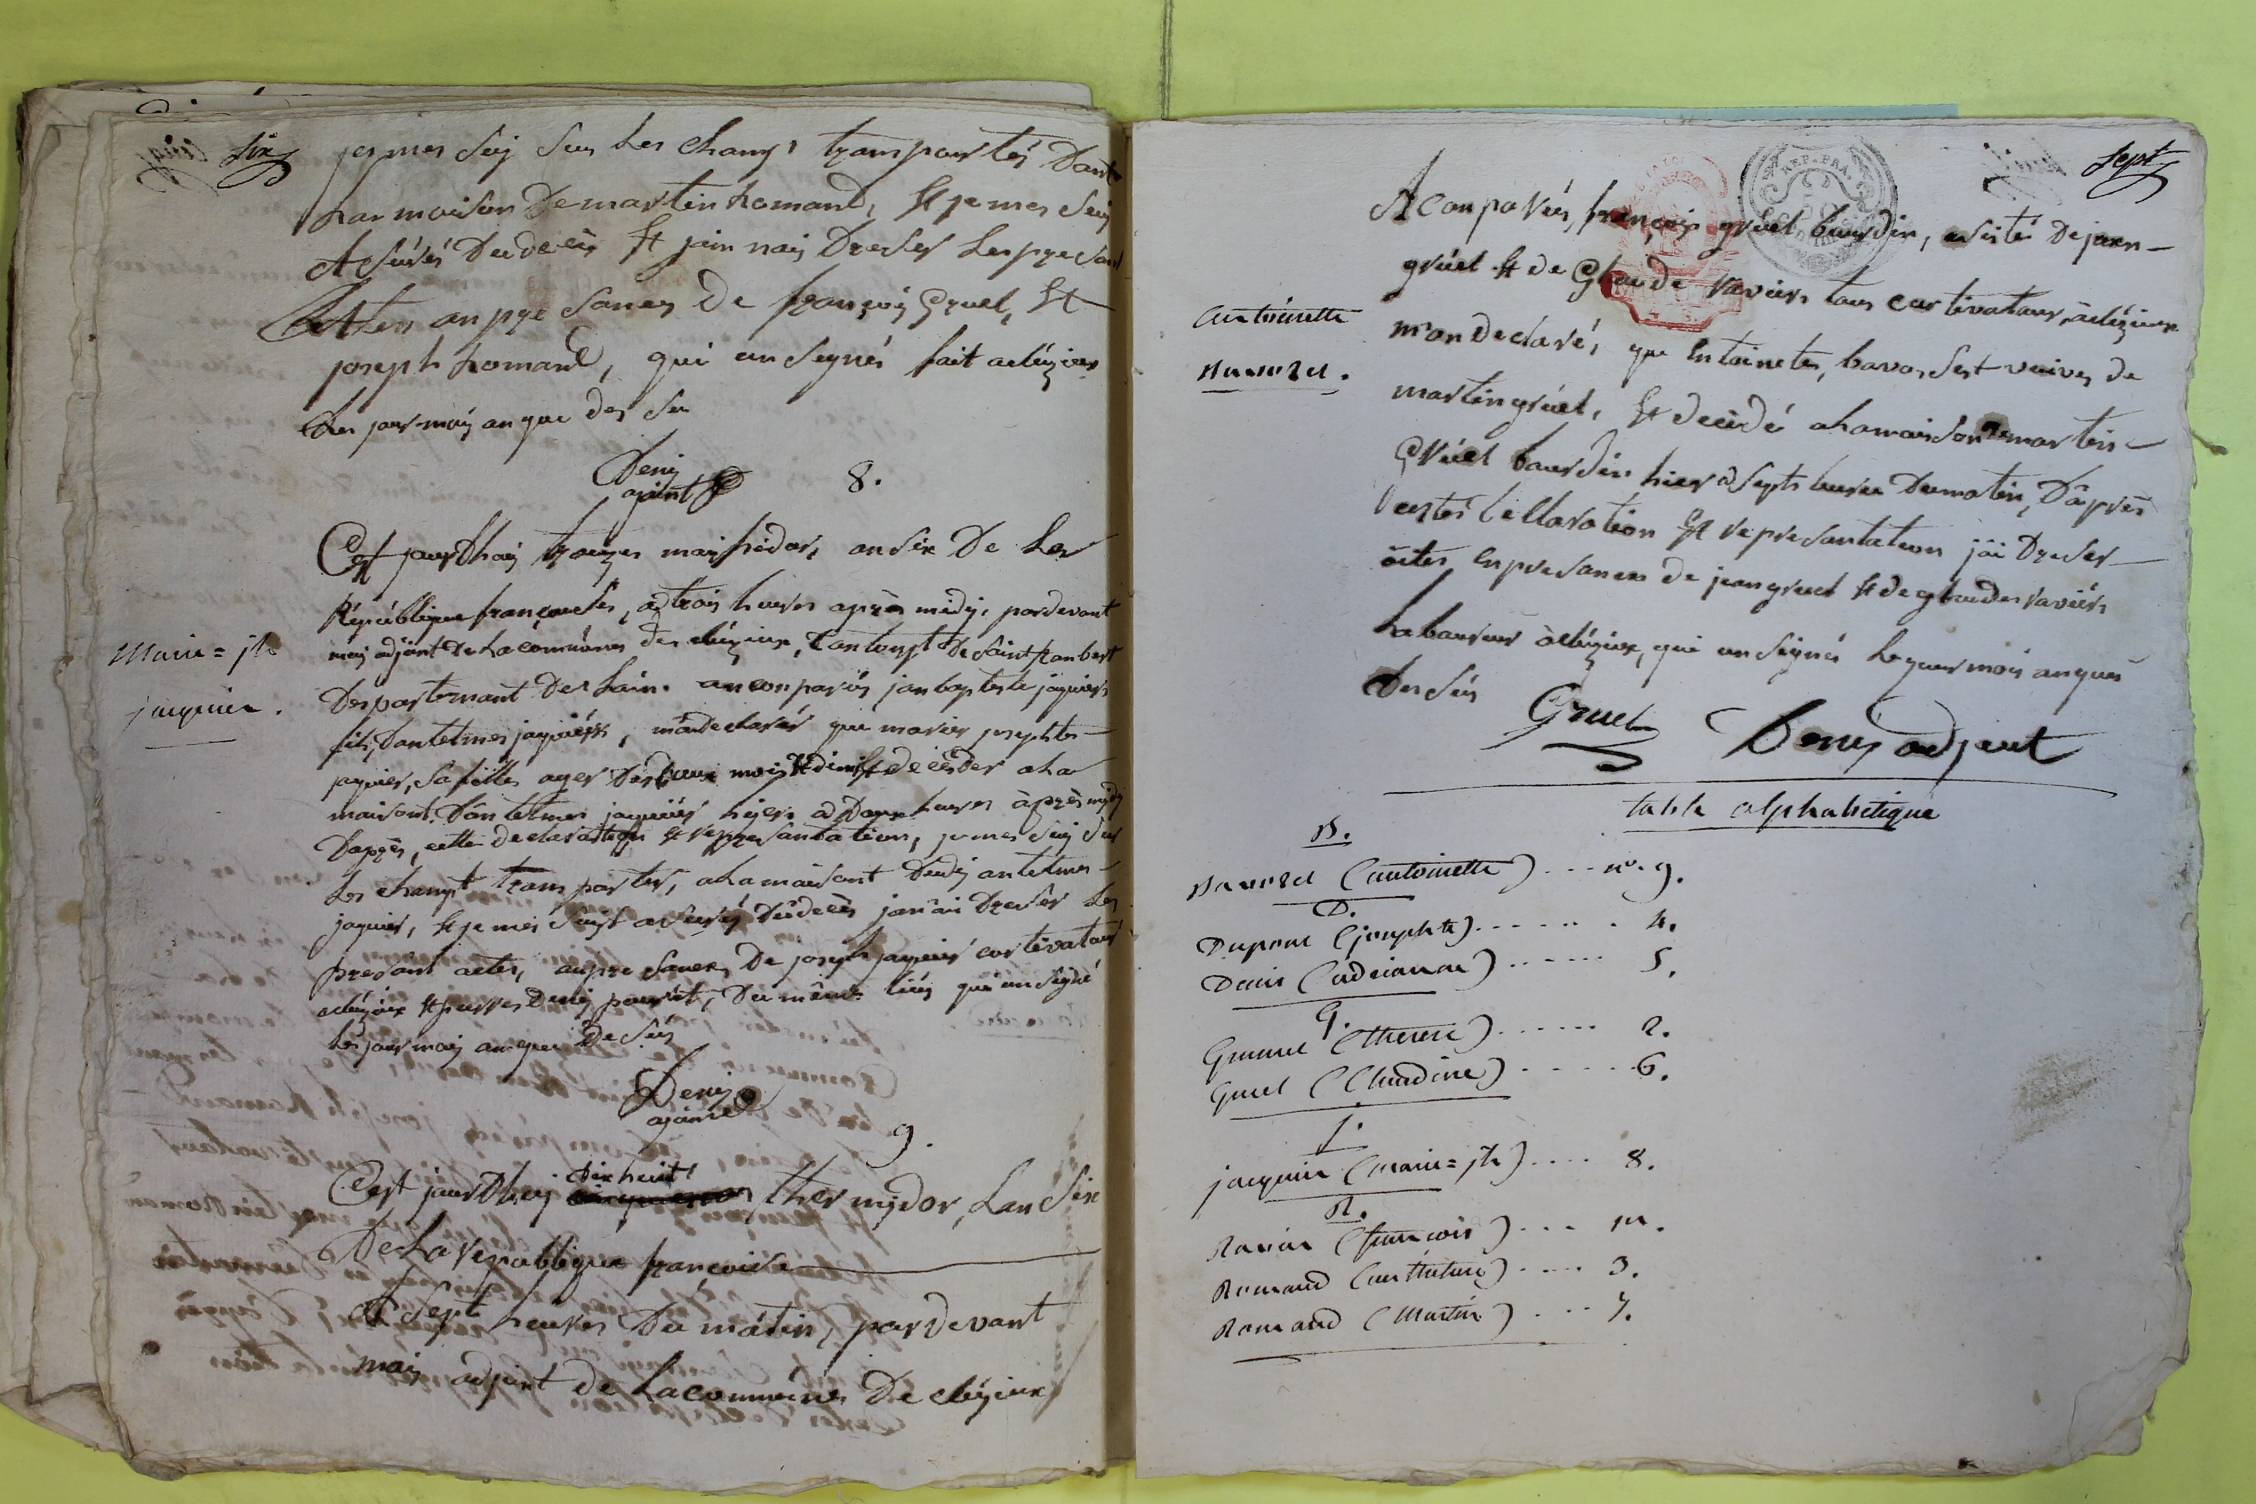 six
je mes suij sus les champs transportés Dant
la maison De martin Romand, Et je mes suij
Asurés Du decès Et jain naij Dreser les presant
Acten an presances de françois gruel, Et
joseph Romand, qui an segnés fait a clézieux
Les jour moij an que des su
Denij
ajoint
8.
Marie = jh
jacquier.
Cest jourdhuij treizes maisidor, ansix De La
Républiques françoises, à trois heures après midy, pardevant
moij adjoint De La comunes de clézieux, Canton de Saint Rambert
Departemant De Lain. a conparus jan baptiste jaquier
fils, Dantelmes jaquiers, mandeclarés que maries josephtes
jaquier, sa filles ager Des deux mois Et dimij Et decéder a la
maisont Dantelmes jaquiér hier à Deux heures après midy
Daprès, cette declaration Et reppresantation, je mes suij sus
Les champt transportés, a la maisont Dudij antelmes
jaquier, Et je mes suist asurés Du decès jan ai Dreser Les
presant actes, an presances De joseph jaquier cortivateur
aclézieux Et pierres Denij paurit, Du mêmes liéu qui an ségné
Les jour moij an que De sus
Denij
ajoint
9.
Cest jourdhuij dix huit thermydor, Lan six
De La republique françoise
A sept heures Du mátin, pardevant
moij adjoint de La communes De clézieux
sept
REP. FRA.
A conparus, françois gruel bourdin, asisté De jean
gruel Et de Glaude raviers tous cortivateurs, à clézieux
m'on declarés, que Entoinetes, bavozet veuves de
martin gruel, Et decédé a la maison De martin
Gruel bourdin hier à sept heures Du matin, D'après
cestes declaration Et representation j'ài Dreser
àctes, En presances de jean gruel Et de glaudes raviérs
Laboureurs à clézieux, qui an signés Les jour mois an ques
Des sus
Antoinette
Bavozet.
Gruel Denis adjoint
table alphabétique
B.
Bavozet (antoinette) .... n°. 9.
D.
Dupont (josephte) ....... 4.
Denis (adrianne) ...... 5.
G.
Grumet (therese) ...... 2.
Gruel (Claudine) ...... 6.
J.
jacquier (marie = jh) .... 8.
R.
Ravier (françois) ....
Romand (anthelme) .... 3.
Romand (Martin) .... 7.